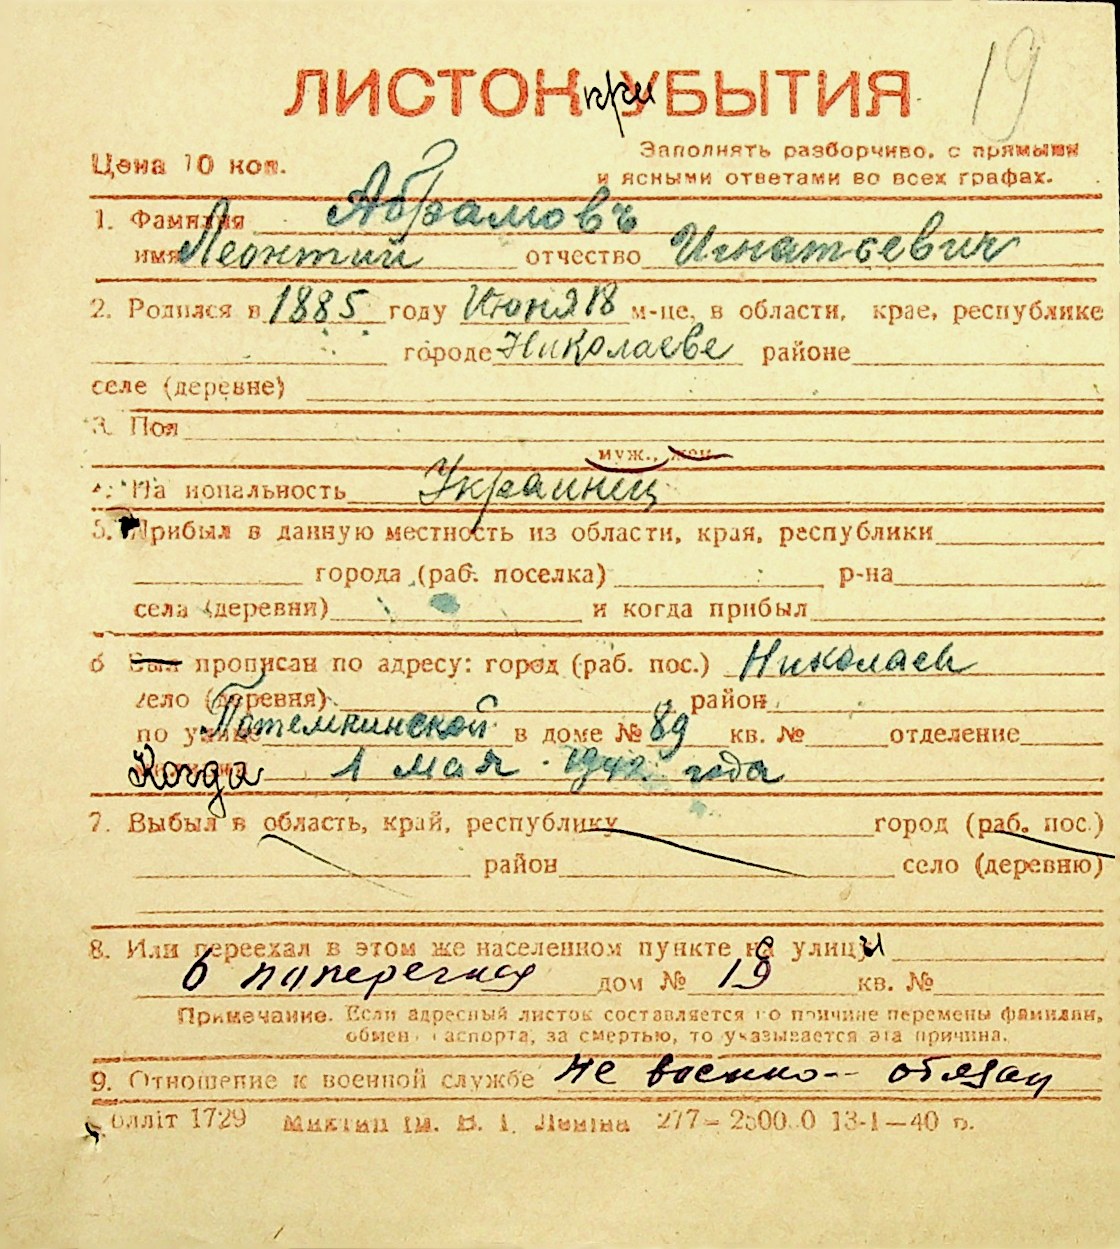 19
ЛИСТОК при УБЫТИЯ
Цена 10 коп.
Заполнять разборчиво, с прямыми
и ясными ответами во всех графах.
1. Фамилия Абрамовъ
имя Леонтий отчество Игнатьевич
2. Родился в 1885 году Июня 18 м-це, в области, крае, республике
городе Николаеве районе
селе (деревне)
3. Пол
муж., жен.
4. Национальность Украинец
5. Прибыл в данную местность из области, края, республики
города (раб. поселка) р-на
села (деревни) и когда прибыл
6 Был прописан по адресу: город (раб. пос.) Николаев
село (деревня) район
по улице Потемкинской в доме № 89 кв. № отделение
Когда 1 мая 1942 года
7. Выбыл в область, край, республику город (раб. пос.)
район село (деревню)
8. Или переехал в этом же населенном пункте с улицы
6 поперечная дом № 19 кв. №
Примечание. Если адресный листок составляется по причине перемены фамилии,
обмена паспорта, за смертью, то указывается эта причина.
9. Отношение к военной службе не военно-обязан
Облліт 1729 ім. В. І. Леніна 277—250000 13-I—40 р.